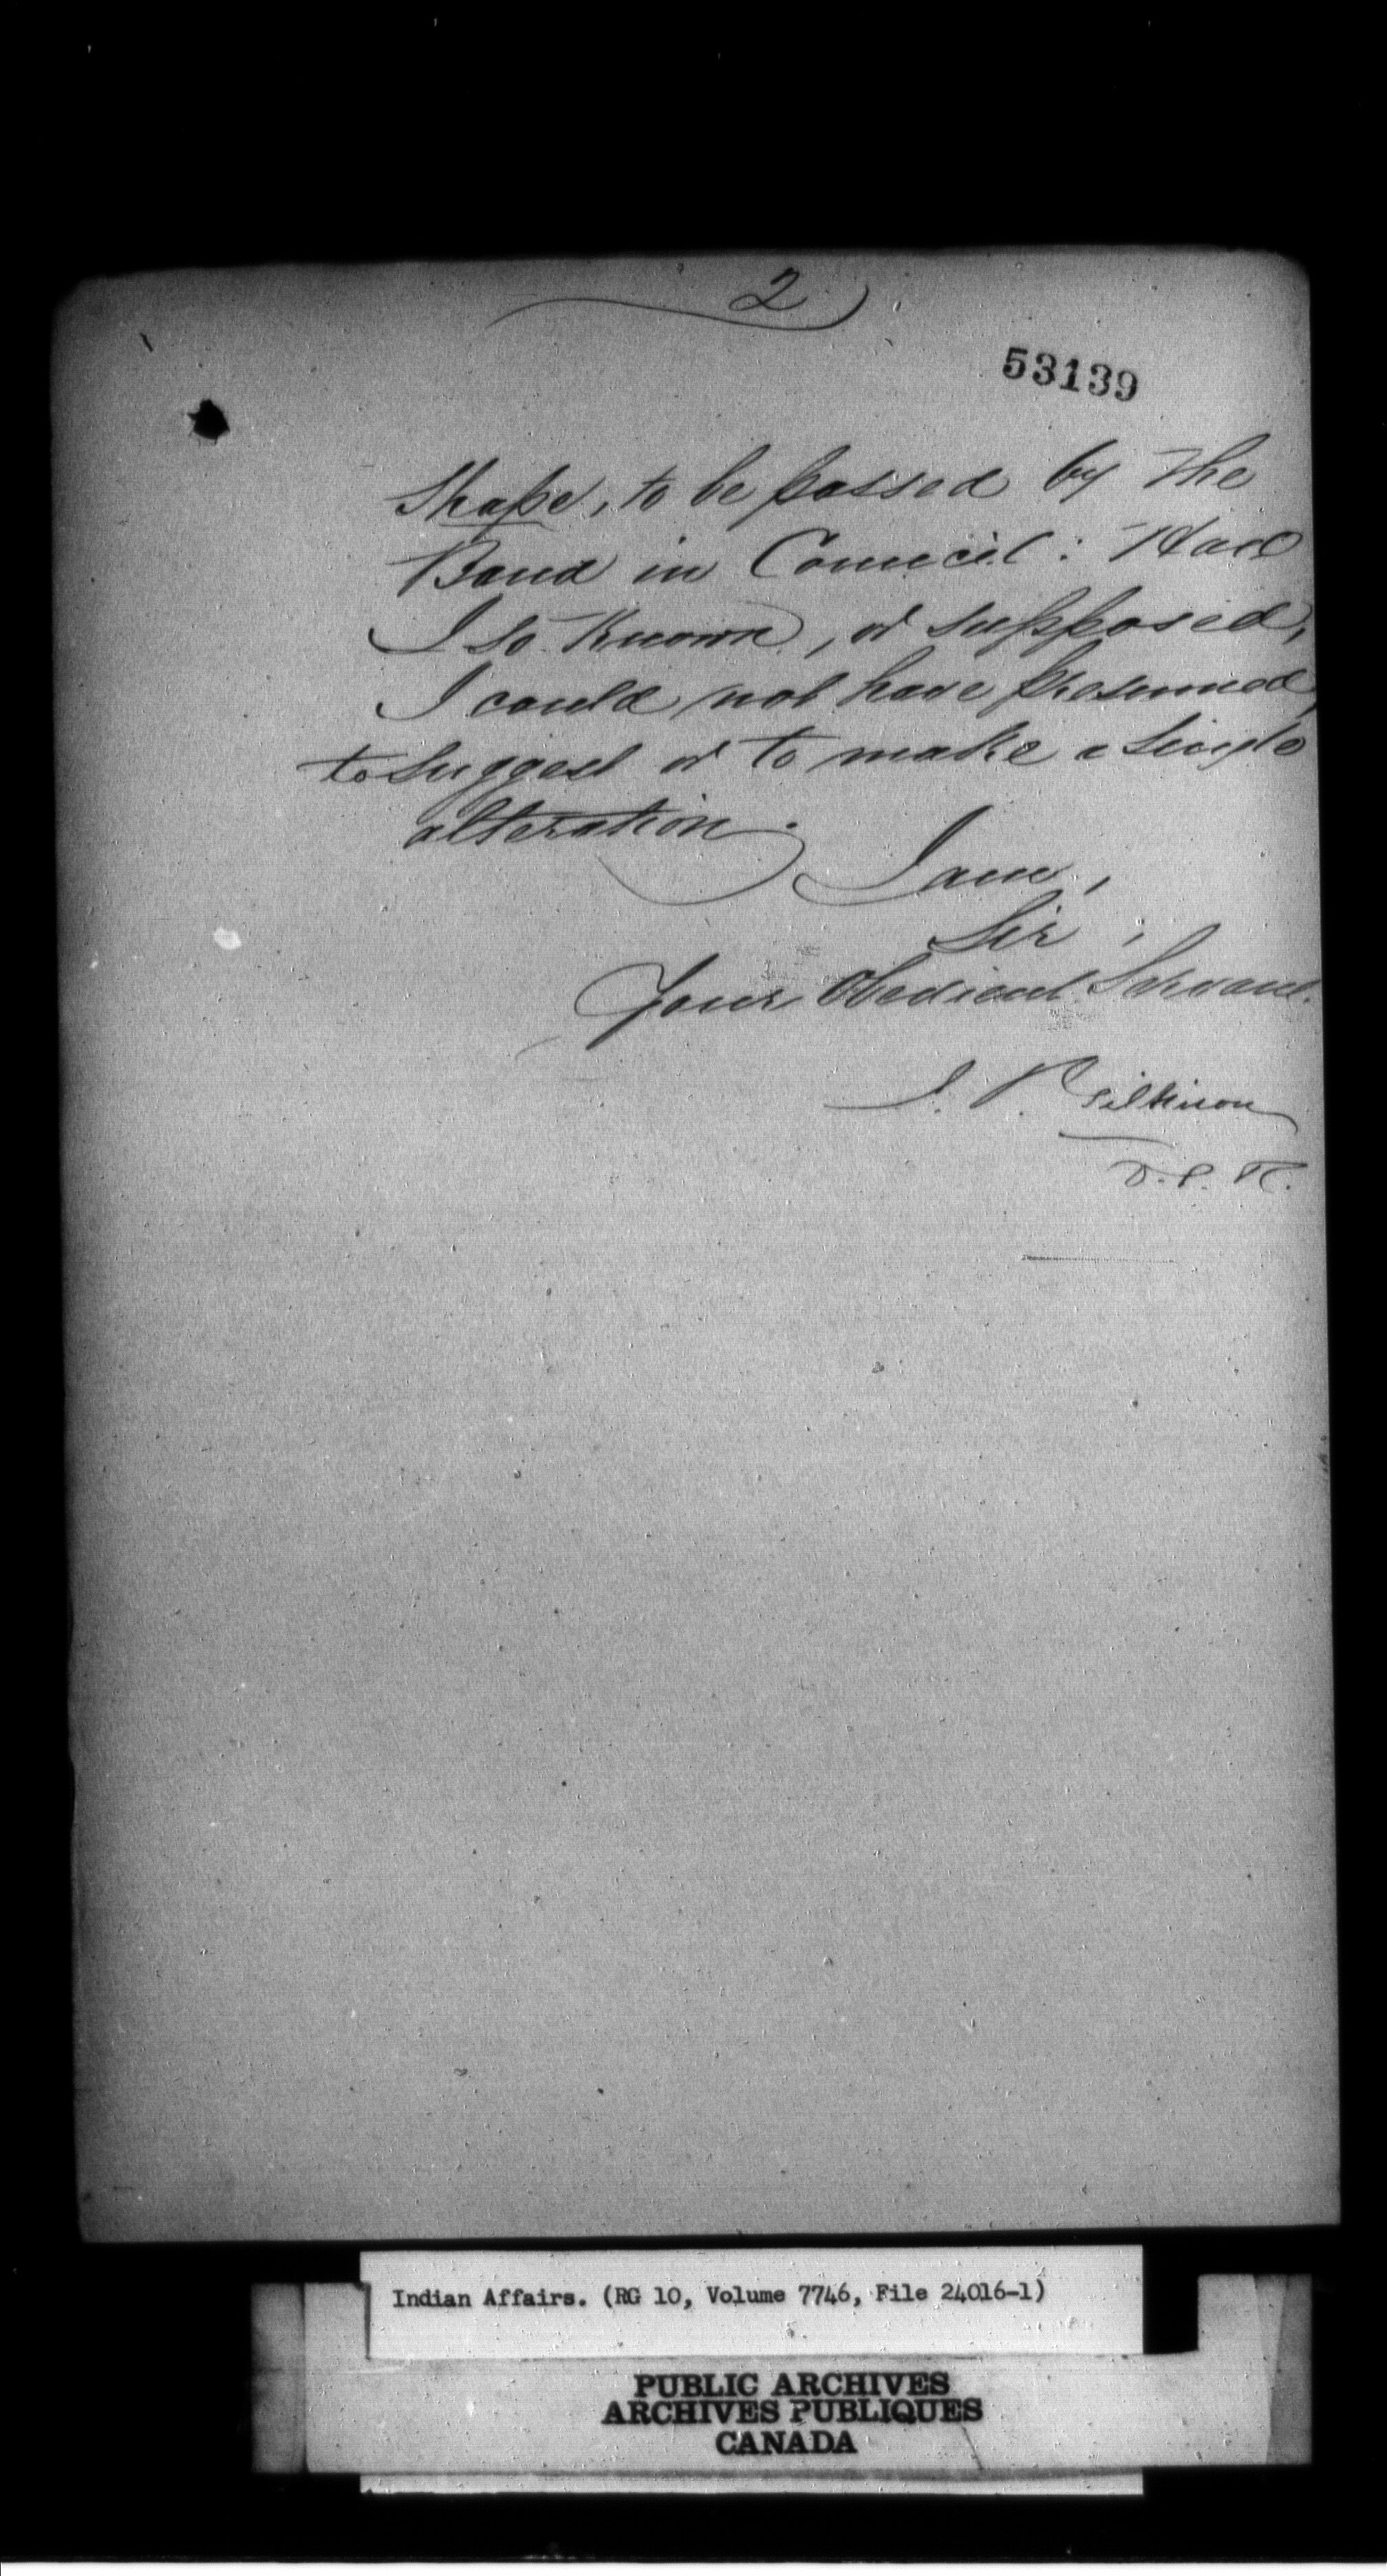 2
53139
Shape, to be passed by the
Band in Council : Had
I so known, or supposed,
I could not have presumed,
to suggest or to make a single
alteration.
I am,
Sir,
Your Obedient Servant.
J. P. Gilkison
Indian Affairs. (RG 10, Volume 7746, File 24016-1)
PUBLIC ARCHIVES
ARCHIVES PUBLIQUES
CANADA